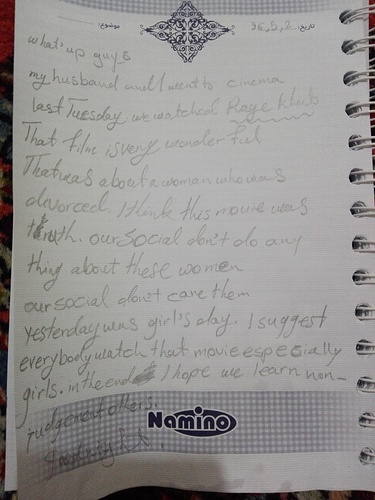 موضوع: تاریخ: 36,5,2
what's up guys
my husband and I went to cinema
last Tuesday we watched Rage khub
That film is very wonder ful
That was about a woman who was
divorced. I think this movie was
truth. our social don't do any
thing about these women
our social don't care them
yesterday was girl's day. I suggest
everybody watch that movie especially
girls. in the end I hope we learn non-
judgement others.
Namino